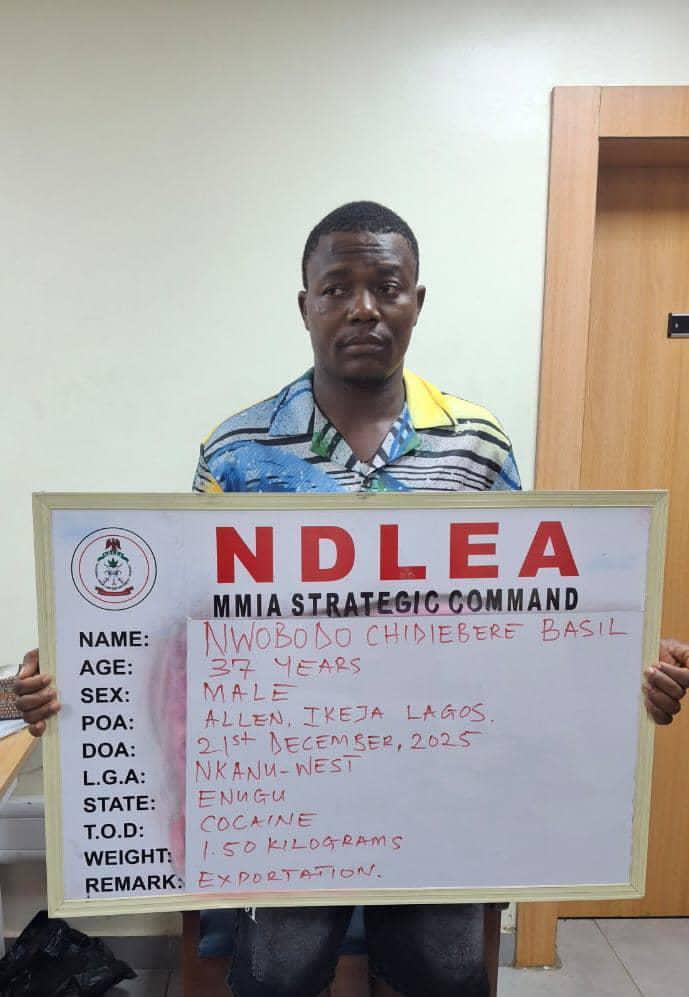 NDLEA
MMIA STRATEGIC COMMAND
NAME: NWOBODO CHIDIEBERE BASIL
AGE: 37 YEARS
SEX: MALE
POA: ALLEN, IKEJA LAGOS.
DOA: 21st DECEMBER, 2025
L.G.A: NKANU-WEST
STATE: ENUGU
T.O.D: COCAINE
WEIGHT: 1.50 KILOGRAMS
REMARK: EXPORTATION.